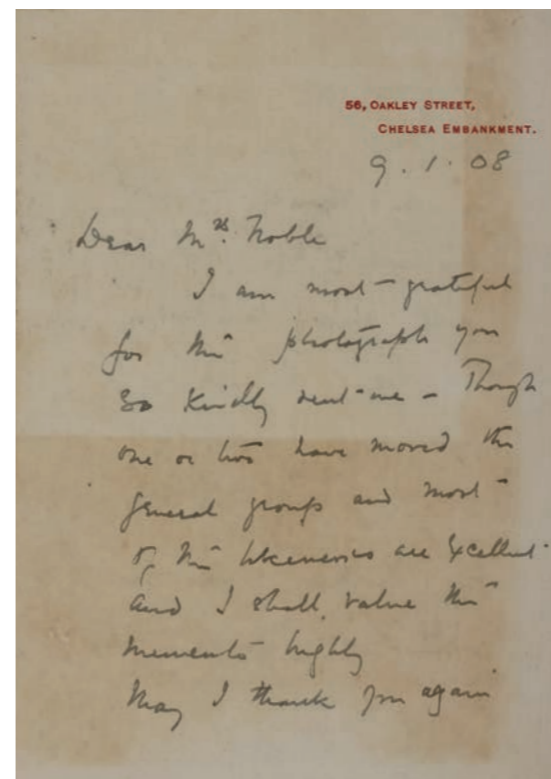 56, OAKLEY STREET,
CHELSEA EMBANKMENT.
9. 1. 08
Dear Mrs. Noble
I am most grateful
for the photograph you
so kindly sent me – Though
one or two have moved the
general groups and most
of the likenesses are excellent.
and I shall value the
memento highly
May I thank you again